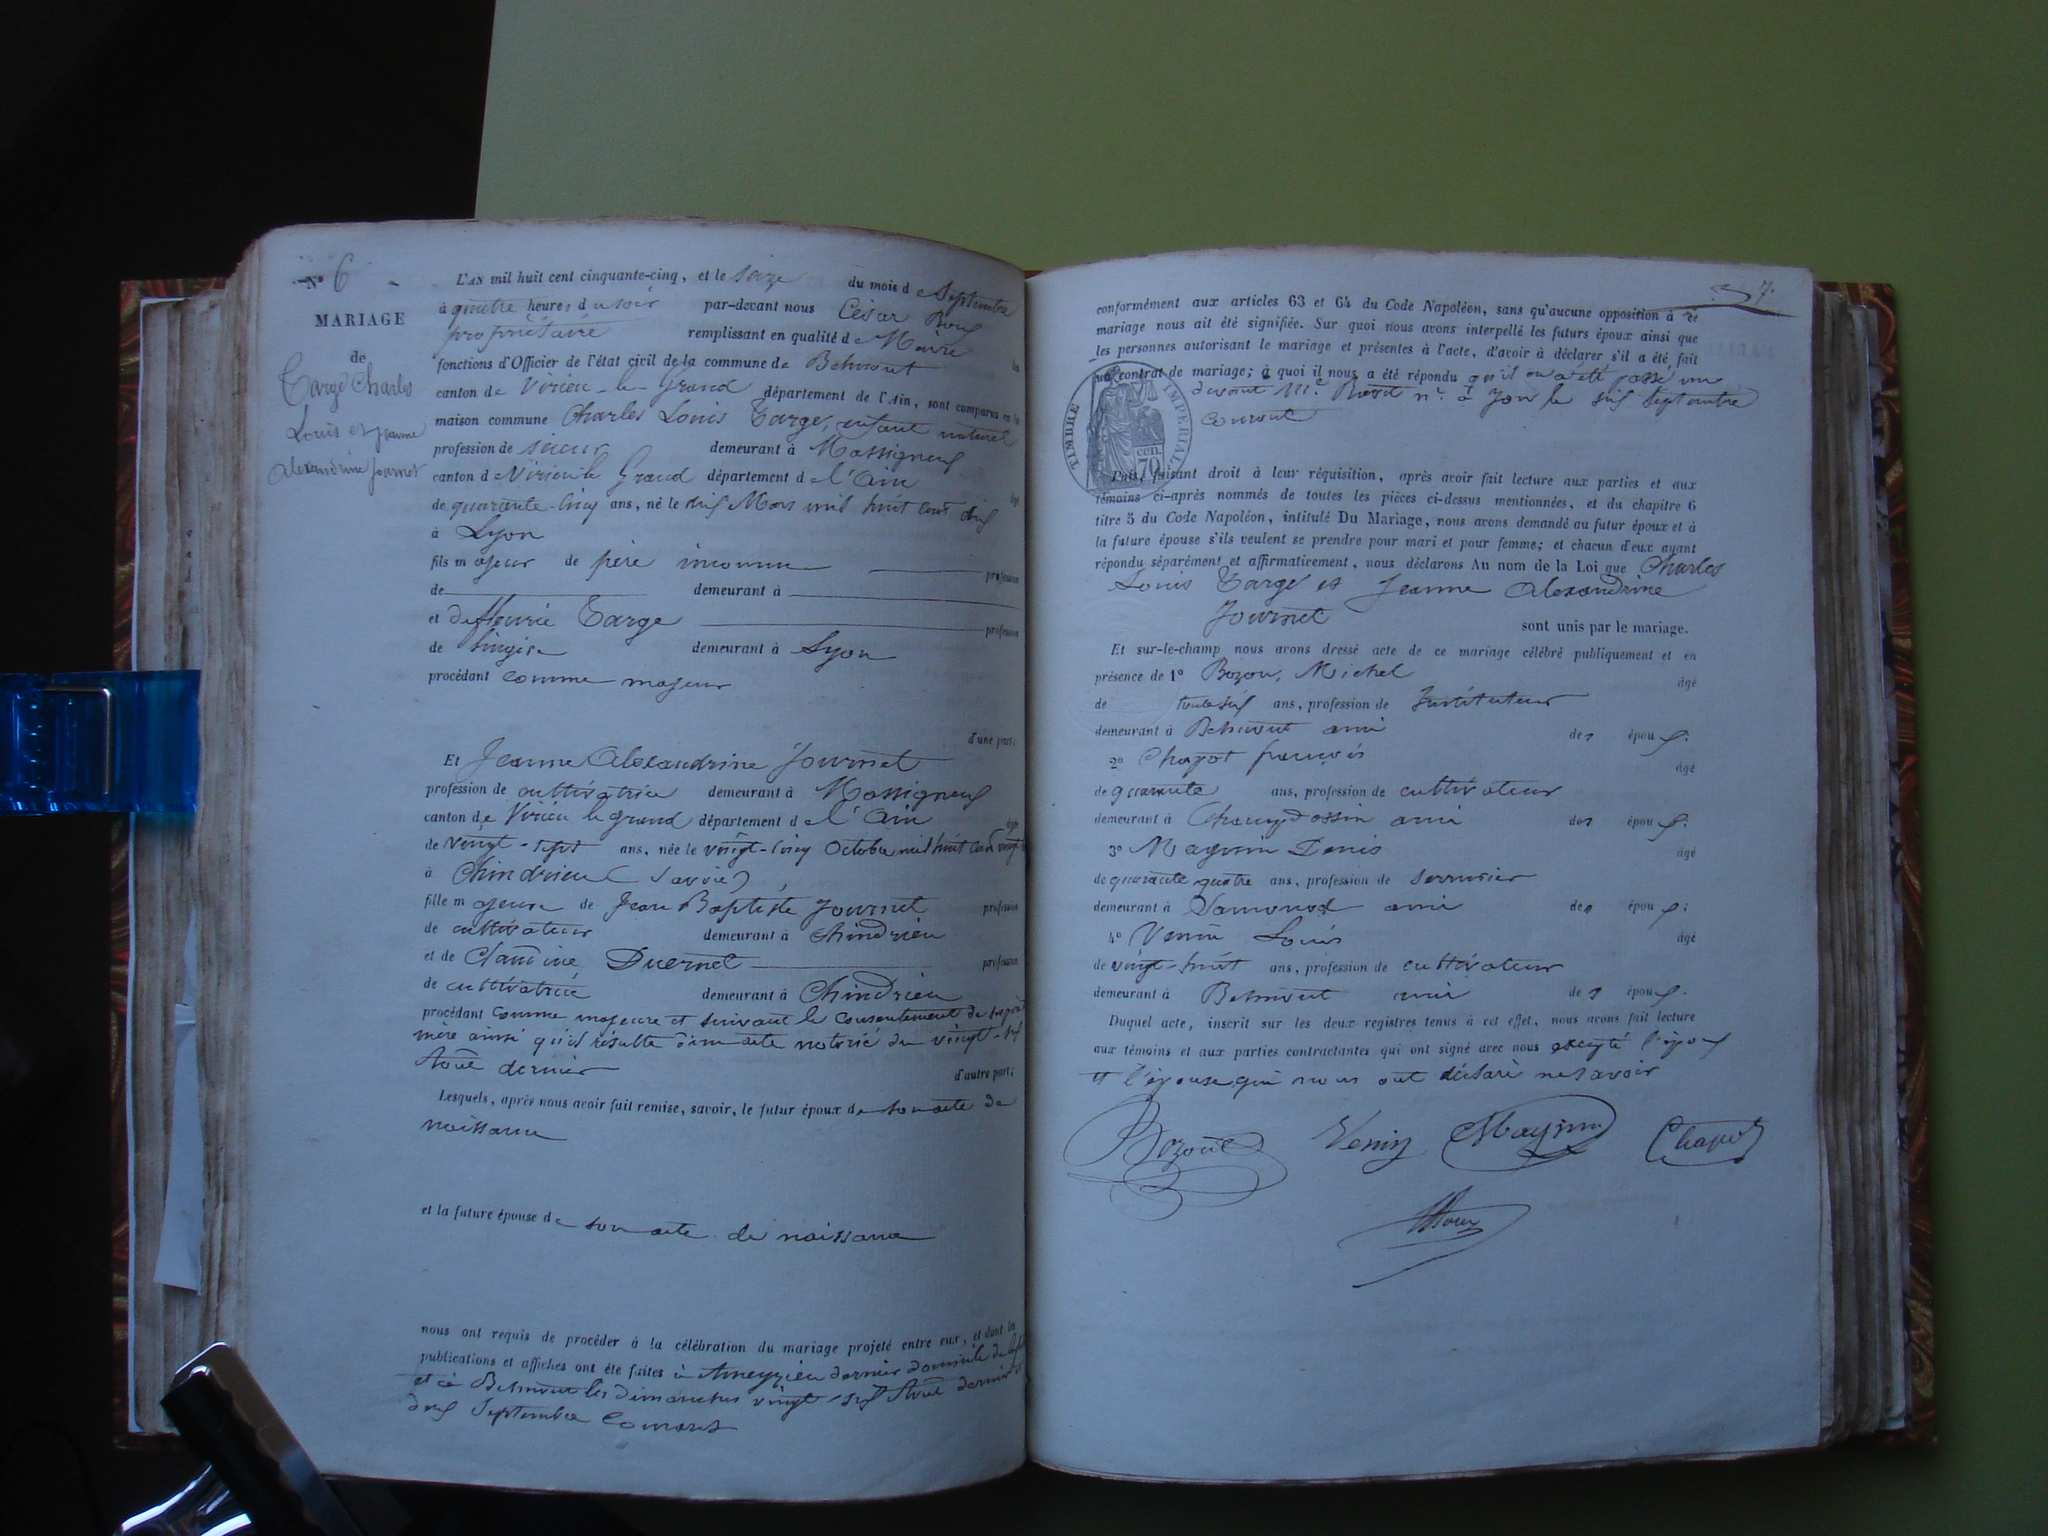 N° 6
MARIAGE
de
Targe Charles
Louis et Jeanne
Alexandrine Journet
L'AN mil huit cent cinquante-cinq, et le seize du mois de Septembre
à quatre heures du soir par-devant nous César
propriétaire remplissant en qualité de Maire les
fonctions d'Officier de l'état civil de la commune de Belmont
canton de Virieu-le-Grand département de l'Ain, sont comparus en la
maison commune Charles Louis Targe, enfant naturel
profession de demeurant à Massignieu
canton de Virieu le Grand département de l'Ain âgé
de quarante-cinq ans, né le dix Mars mil huit cent dix
à Lyon
fils majeur de père inconnu profession
de demeurant à
et de fleurie Targe profession
de lingère demeurant à Lyon
procédant comme majeur
d'une part;
Et Jeanne Alexandrine Journet
profession de cultivatrice demeurant à Massignieu
canton de Virieu le grand département de l'Ain âgée
de vingt-sept ans, née le vingt-cinq octobre mil huit cent vingt
à Chindrieu (Savoie)
fille majeure de Jean Baptiste Journet profession
de cultivateur demeurant à Chindrieu
et de Claudine Duernet profession
de cultivatrice demeurant à Chindrieu
procédant comme majeure et suivant le consentement de ses père
mère ainsi qu'il résulte d'un acte notarié du vingt-six
Août dernier d'autre part;
Lesquels, après nous avoir fait remise, savoir, le futur époux de son acte de
naissance
et la future épouse de son acte de naissance
nous ont requis de procéder à la célébration du mariage projeté entre eux, et dont les
publications et affiches ont été faites à Ameyzieu dernier domicile de
et à Belmont les dimanches vingt-six Août dernier et
deux Septembre Courant
7.
conformément aux articles 63 et 64 du Code Napoléon, sans qu'aucune opposition à ce
mariage nous ait été signifiée. Sur quoi nous avons interpellé les futurs époux ainsi que
les personnes autorisant le mariage et présentes à l'acte, d'avoir à déclarer s'il a été fait
un contrat de mariage; à quoi il nous a été répondu qu'il en a été passé un
devant Me. nre. à Yon le six Septembre
courant
TIMBRE IMPÉRIAL
70 cen.
Puis, faisant droit à leur réquisition, après avoir fait lecture aux parties et aux
témoins ci-après nommés de toutes les pièces ci-dessus mentionnées, et du chapitre 6
titre 5 du Code Napoléon, intitulé Du Mariage, nous avons demandé au futur époux et à
la future épouse s'ils veulent se prendre pour mari et pour femme; et chacun d'eux ayant
répondu séparément et affirmativement, nous déclarons Au nom de la Loi que Charles
Louis Targe et Jeanne Alexandrine
Journet sont unis par le mariage.
Et sur-le-champ nous avons dressé acte de ce mariage célébré publiquement et en
présence de 1° Bozon, Michel âgé
de trente six ans, profession de Instituteur
demeurant à Belmont ami des époux.
2° Chapot françois âgé
de quarante ans, profession de cultivateur
demeurant à Champdossin ami des époux.
3° Magnin Denis âgé
de quarante quatre ans, profession de serrurier
demeurant à Samonod ami des époux;
4° Venin Louis âgé
de vingt-huit ans, profession de cultivateur
demeurant à Belmont ami des époux.
Duquel acte, inscrit sur les deux registres tenus à cet effet, nous avons fait lecture
aux témoins et aux parties contractantes qui ont signé avec nous excepté l'époux
et l'épouse qui nous ont déclaré ne savoir
Bozon Venin Magnin Chapot